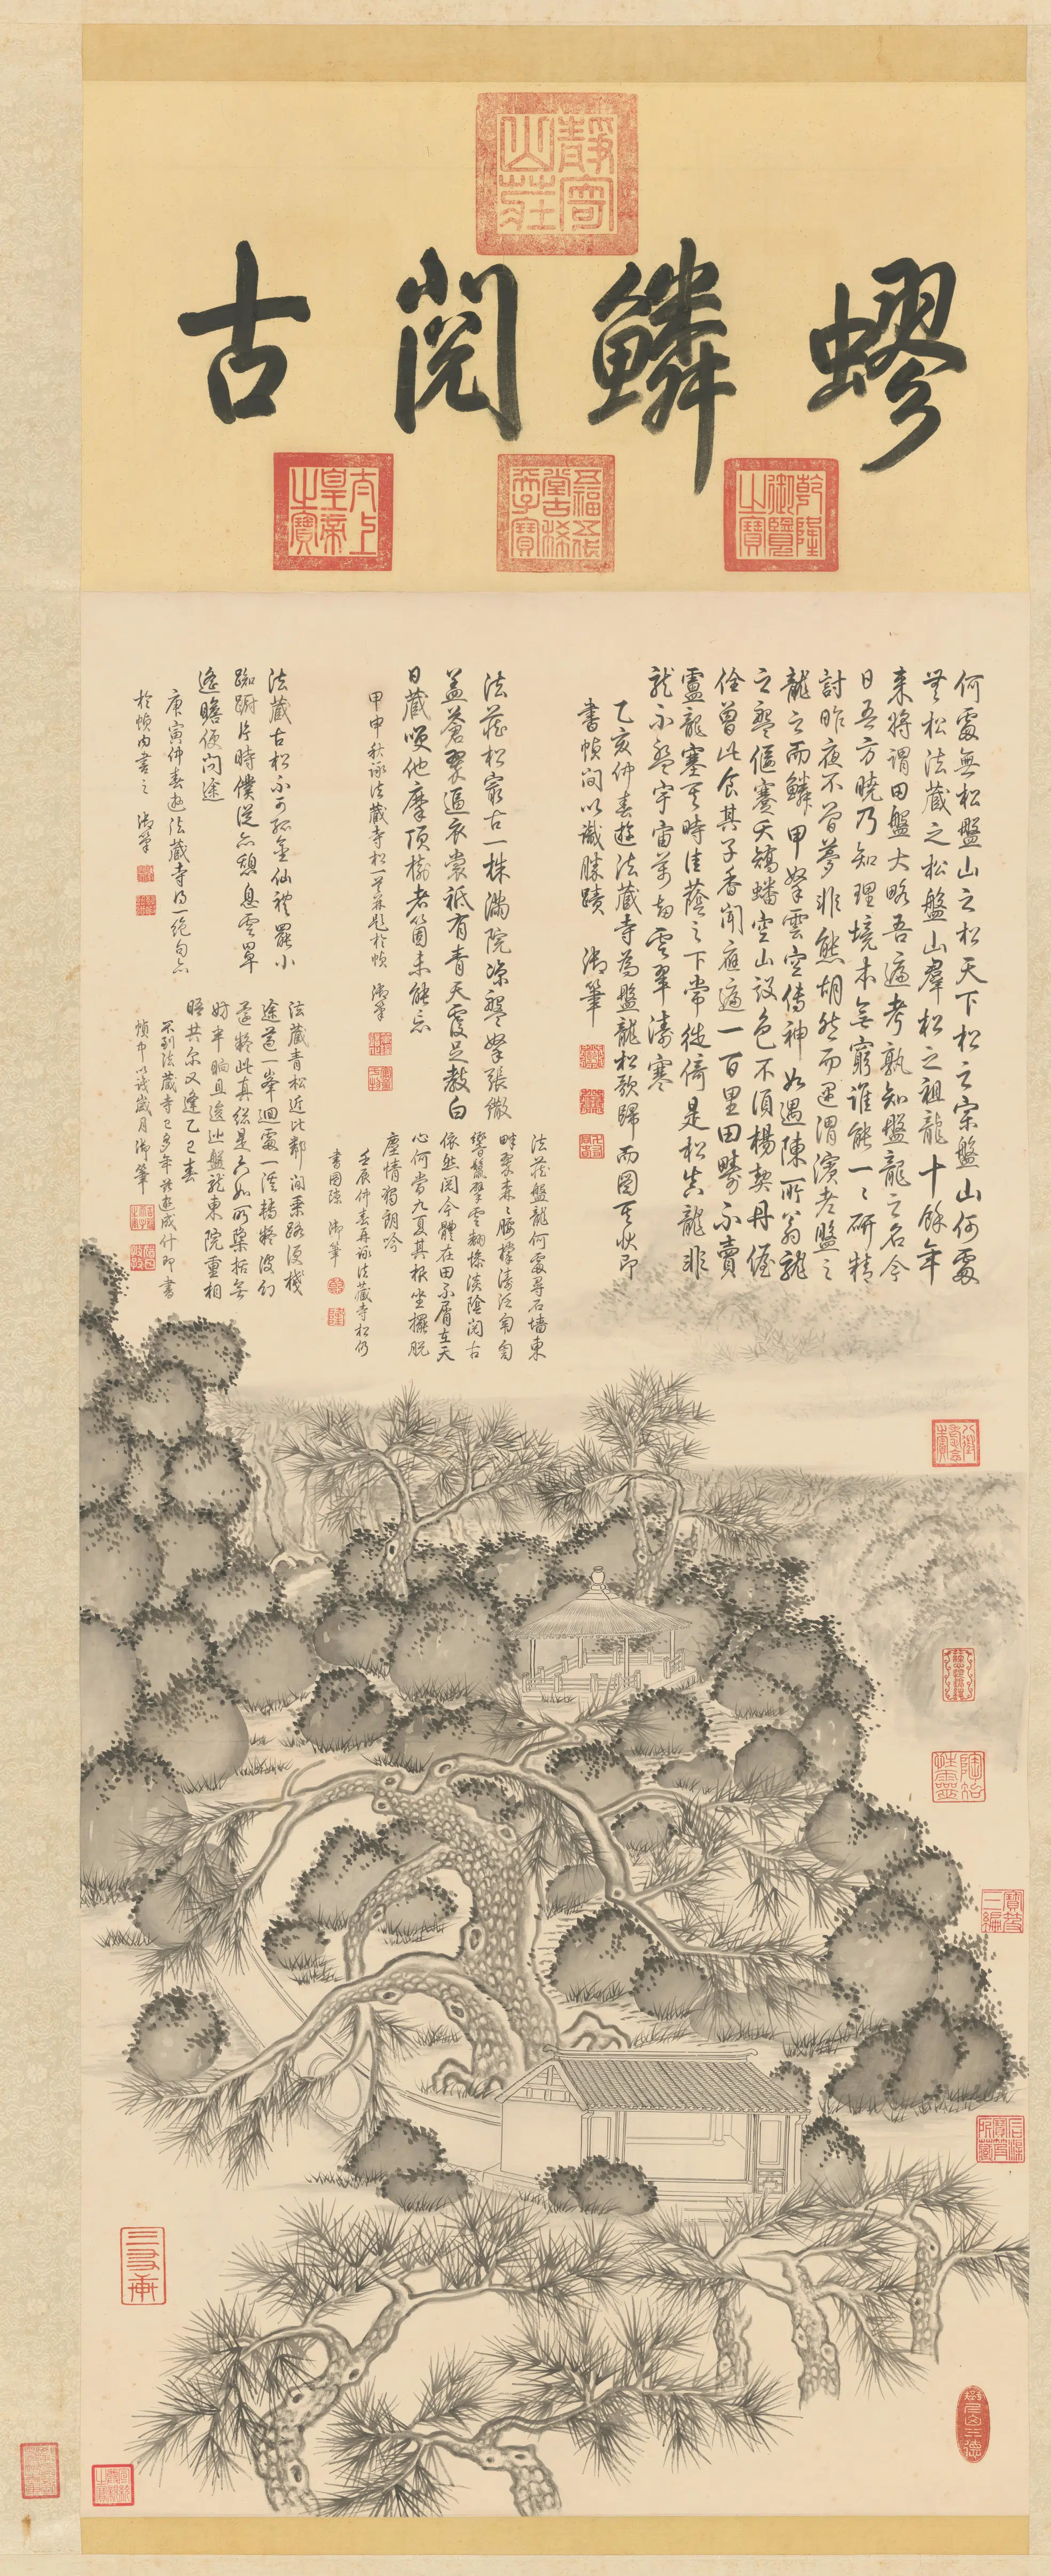 靜寄山莊
蟉鱗閱古
乾隆御覽之寶
五福五代堂古稀天子寶
太上皇帝之寶
何處無松盤山之松天下松之宗盤山何處
無松法藏之松盤山羣松之祖龍十餘年
來將謂田盤大略吾遍考孰知盤龍之名今
日吾方曉乃知理境本無窮誰能一一研精
討昨夜不曾夢非熊胡然而遇渭濱老盤之
龍之而鱗甲拏雲空傳神如遇陳所翁龍
之盤偃蹇夭矯蟠空山設色不須楊契丹偓
佺曾此食其子香聞應遍一百里田疇不賣
盧龍塞其時佳蔭之下常徙倚是松吳龍非
龍永盤宇宙萬劫雲翠濤寒
乙亥仲春遊法藏寺為盤龍松歌歸而圖其狀即
書幀間以識勝蹟 御筆
法藏松最古一株滿院涼盤拏張繖
蓋蒼翠逼衣裳祗有青天覆足教白
日藏嘆他摩頂樹老箇未能忘
甲申秋詠法藏寺松一首並題於幀 御筆
法藏盤龍何處尋石墻東
畔翠森森腰撐濤泛匍匐
響鬣擘雲翻慘淡陰閱古
依然閱今體在田不屑在天
心何當九夏其根坐攤脫
塵情獨朗吟
壬辰仲春再詠法藏寺松仍
書圖隙 御筆
法藏古松不可孤金仙禮罷小
踟躕片時僕從亦憩息雲罩
遙瞻便問途
庚寅仲春遊法藏寺得一絕句亦
於幀內書之 御筆
法藏青松近比鄰閒乘路便棧
途遵一峯迴處一溪轉疑波幻
還疑此真總是六如所槩括無
妨半晌且逡巡盤龍東院重相
晤共爾又逢乙巳春
不到法藏寺已多年茲遊成什即書
幀中以識歲月 御筆
八徵耄念之寶
陶冶性靈
寶笈三編
石渠寶笈所藏
三希堂